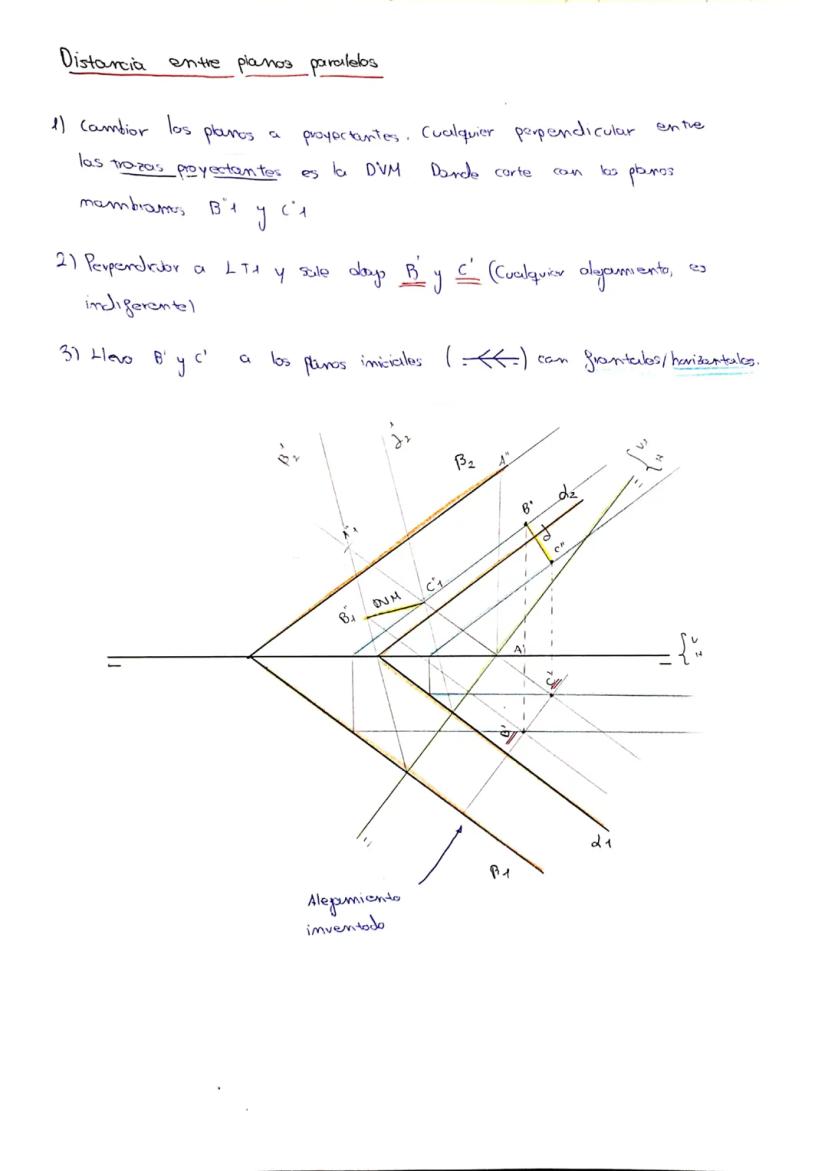 Distancia entre planos paralelos
1) Cambiar los planos a proyectantes. Cualquier perpendicular entre
las trazas proyectantes es la DVM Donde corte con los planos
nombramos B''1 y C''1
2) Perpendicular a LT1 y sale abajo B' y C' (Cualquier alejamiento, es
indiferente)
3) Llevo B' y C' a los planos iniciales ( ) con frontales/horizontales.
β2 A'' V'
H
β'2 α2
B''
A''1 d
C''
C''1
DVM
B''1
A' V
H
C'
B'
α1
β1
Alejamiento
inventado